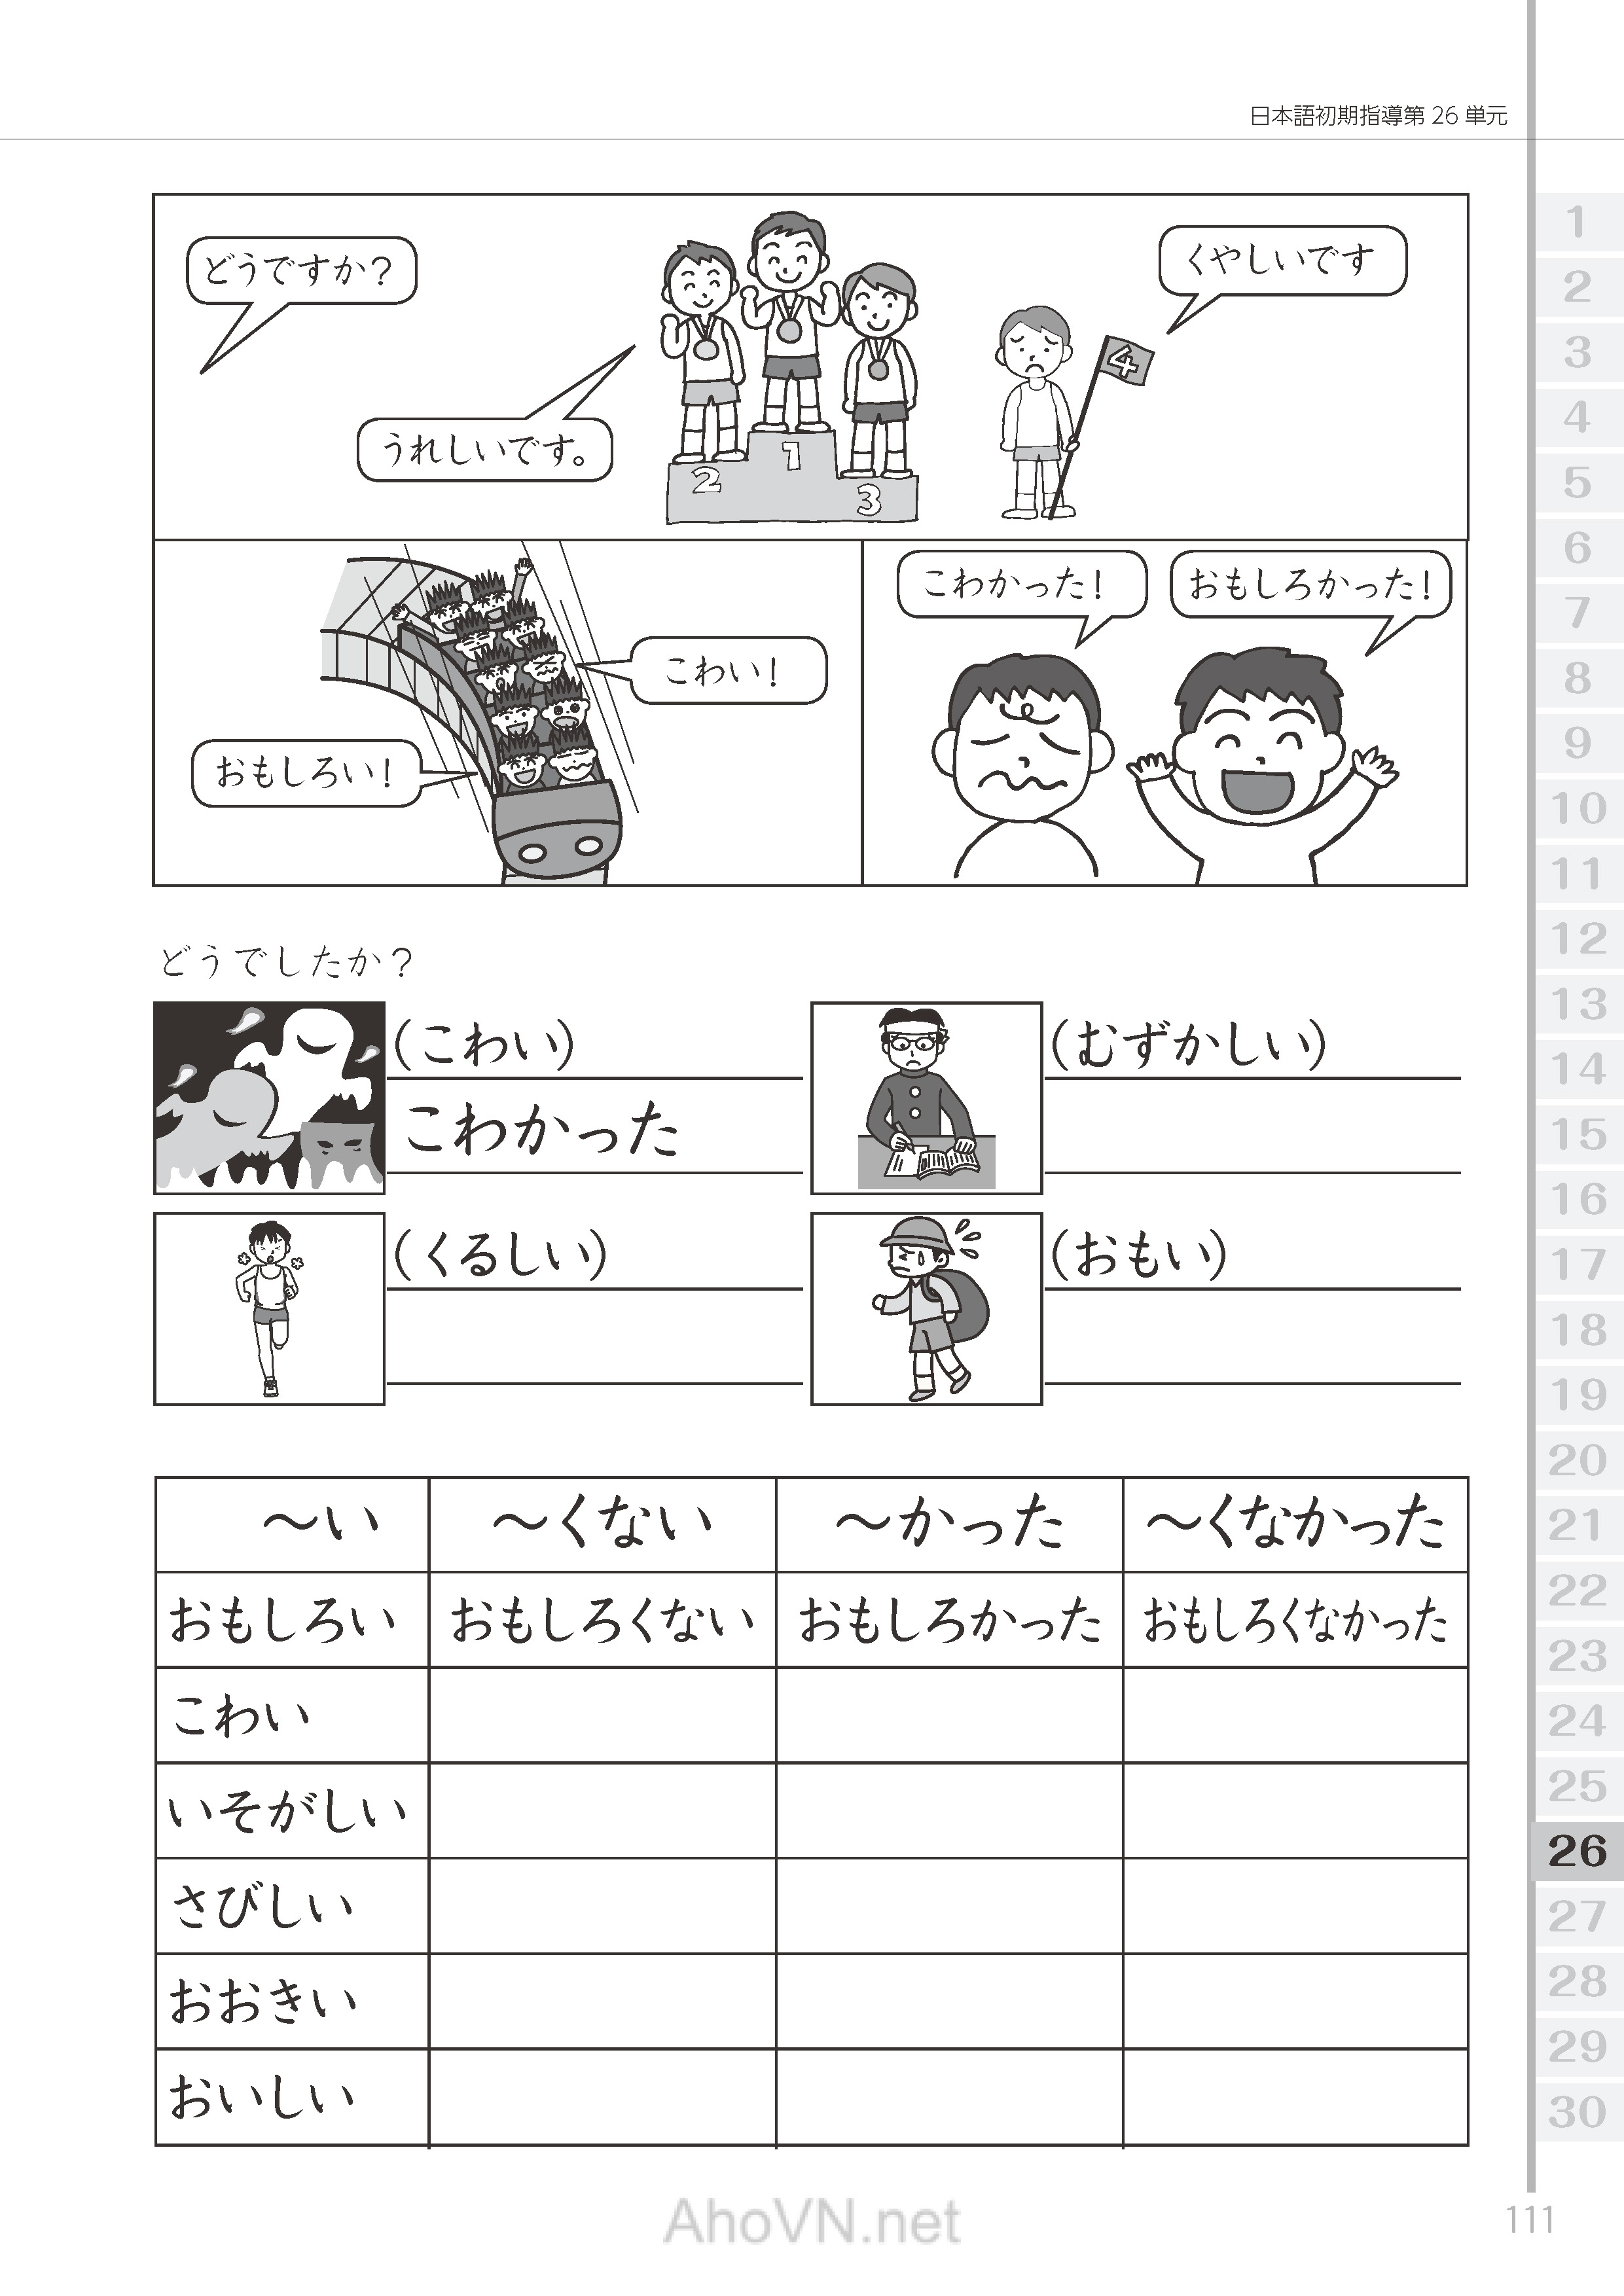 日本語初期指導第 26 単元
どうですか？
くやしいです
うれしいです。
1
2
3
4
こわかった！
おもしろかった！
こわい！
おもしろい！
どうでしたか？
（こわい）
こわかった
（むずかしい）
（くるしい）
（おもい）
～い ～くない ～かった ～くなかった
おもしろい おもしろくない おもしろかった おもしろくなかった
こわい
いそがしい
さびしい
おおきい
おいしい
1
2
3
4
5
6
7
8
9
10
11
12
13
14
15
16
17
18
19
20
21
22
23
24
25
26
27
28
29
30
AhoVN.net
111